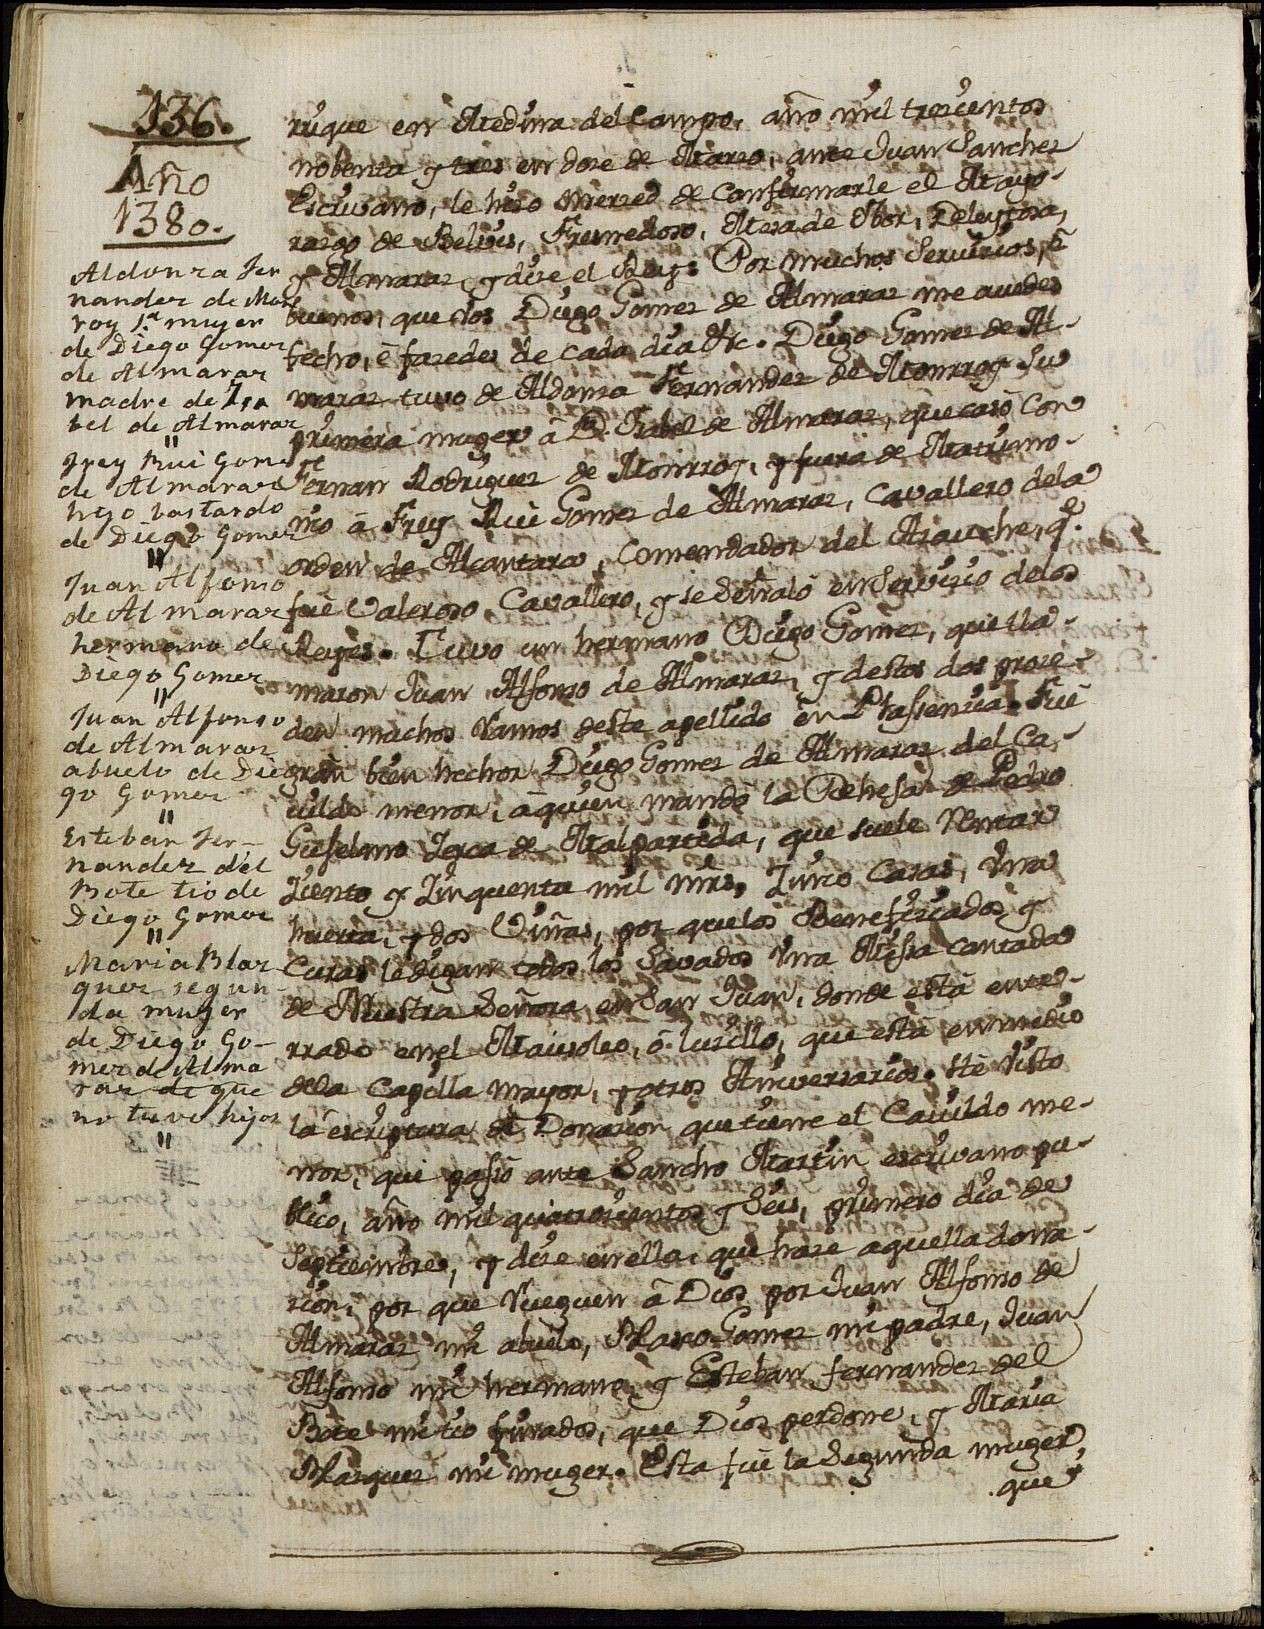 136.
Año
1380.
Aldonza Fer
nandez de Mon
roy 1.ª muger
de Diego Gomez
de Almaraz
madre de Isa
bel de Almaraz
"
Frey Rui Gomez
de Almaraz
hijo bastardo
de Diego Gomez
"
Juan Alfonso
de Almaraz
hermano de
Diego Gomez
"
Juan Alfonso
de Almaraz
abuelo de Die
go Gomez
"
Esteban Fer-
nandez del
Bote tio de
Diego Gomez
"
Maria Blaz
quez segun-
da muger
de Diego Go-
mez de Alma
raz de que
no tuvo hijos
"
rique en Medina del Campo, año mil trescientos
nobenta y tres en doze de Marzo, ante Juan Sanchez
Escrivano, le hizo merzed de Confirmarle el Mayo-
razgo de Belvis, Fresnedoso, Mesa de Ibor, Deleytosa,
y Almaraz, y dize el Rey: Por muchos Servicios, ē
buenos, que vos Diego Gomez de Almaraz me avedes
fecho, ē fazedes de cada dia &c. Diego Gomez de Al-
maraz tuvo de Aldonza Fernandez de Monrroy su
primera muger â D.ª Isabel de Almaraz, que casô con
Fernan Rodriguez de Monrroy, y fuera de Matrimo-
nio â Frey Rui Gomez de Almaraz, Cavallero dela
orden de Alcantara, Comendador del Azauche, q.e
fuê Valeroso Cavallero, y se señalô en Servizio delos
Reyes. Tuvo un hermano Diego Gomez, que lla-
maron Juan Alfonso de Almaraz, y destos dos proze-
den muchos Ramos deste apellido en Plasenzia. Fuê
gran bien hechor Diego Gomez de Almaraz del Ca-
vildo menor, â quien mandô la Dehesa de Pedro
Gielelmo Zerca de Malpartida, que suele Rentar
Ziento y Zinquenta mil mrs, Zinco Casas, Vna
huerta, y dos Viñas, por quelos Benefiziados, y
Curas le digan todos los Savados Vna Missa cantada
de Nuestra Señora en San Juan, donde està enter-
rrado en el Mausoleo, ô luzillo, que està en medio
dela Capilla mayor, y otros Aniversarios. Hê Visto
la escriptura de Donazion que tiene el Cavildo me-
nor, que passô ante Sancho Martin escrivano pu-
blico, año mil quatrozientos y Seis, primero dia de
Septiembre, y dize en ella, que haze aquella dona-
zion, por que Rueguen â Dios por Juan Alfonso de
Almaraz mi abuelo, Blasco Gomez mi padre, Juan
Alfonso mi hermano, y Esteban fernandez del
Bote mi tio finados, que Dios perdone, y Maria
Blazquez mi muger. Esta fuê la Segunda muger,
que